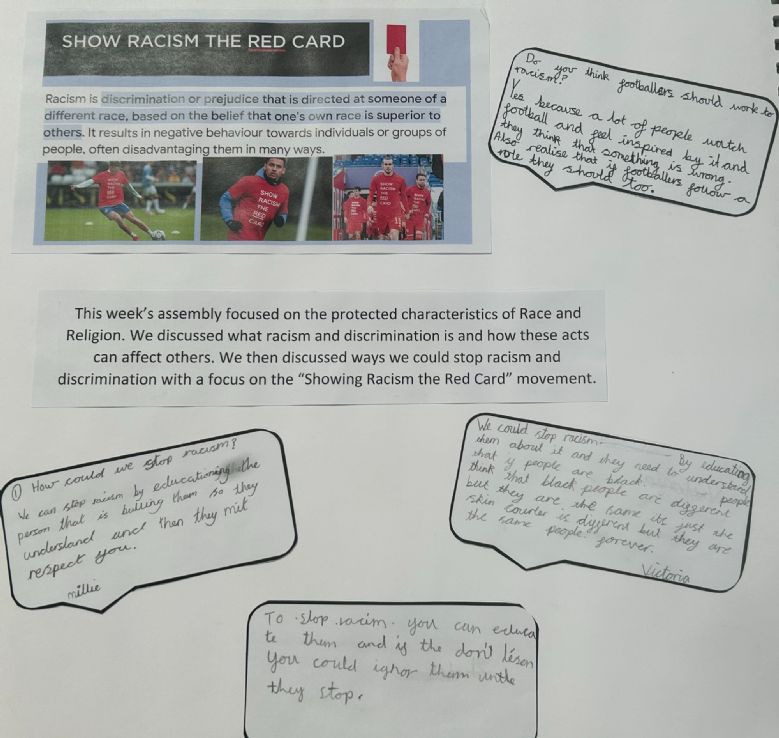 SHOW RACISM THE RED CARD
Racism is discrimination or prejudice that is directed at someone of a
different race, based on the belief that one's own race is superior to
others. It results in negative behaviour towards individuals or groups of
people, often disadvantaging them in many ways.
SHOW
RACISM
THE
RED
CARD
Do you think footballers should work to
racism?
Yes because a lot of people watch
football and feel inspired by it and
they think that something is wrong.
Also realise that if footballers follow a
rule they should too.
This week's assembly focused on the protected characteristics of Race and
Religion. We discussed what racism and discrimination is and how these acts
can affect others. We then discussed ways we could stop racism and
discrimination with a focus on the "Showing Racism the Red Card" movement.
① How could we stop racism?
We can stop racism by educationing the
person that is bulling them so they
understand and then they mit
respect you.
millie
We could stop racism By educating
them about it and they need to understand
that if people are black people
think that black people are different
but they are the same its just the
skin courler is different but they are
the same people forever.
Victoria
To stop racim you can educa
te them and if the don't lison
You could ignor them untle
they stop.